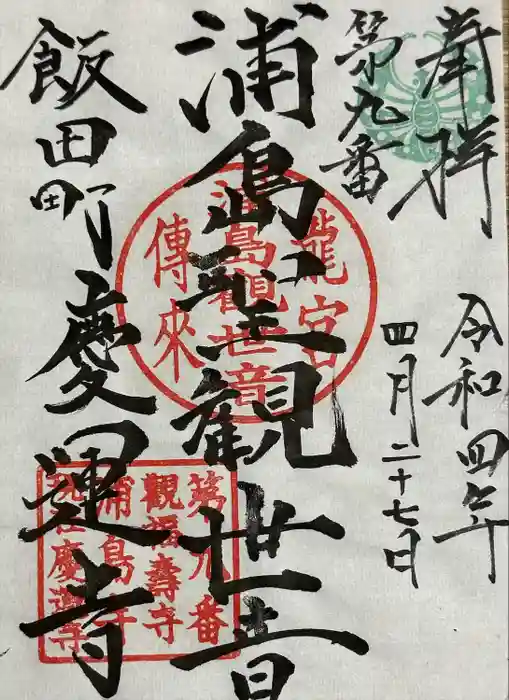 奉拝
第九番
令和四年
四月二十七日
浦島聖観世音
飯田町慶運寺
龍宮
浦島観世音
傳來
第九番
觀福壽寺
浦島寺
慶運寺